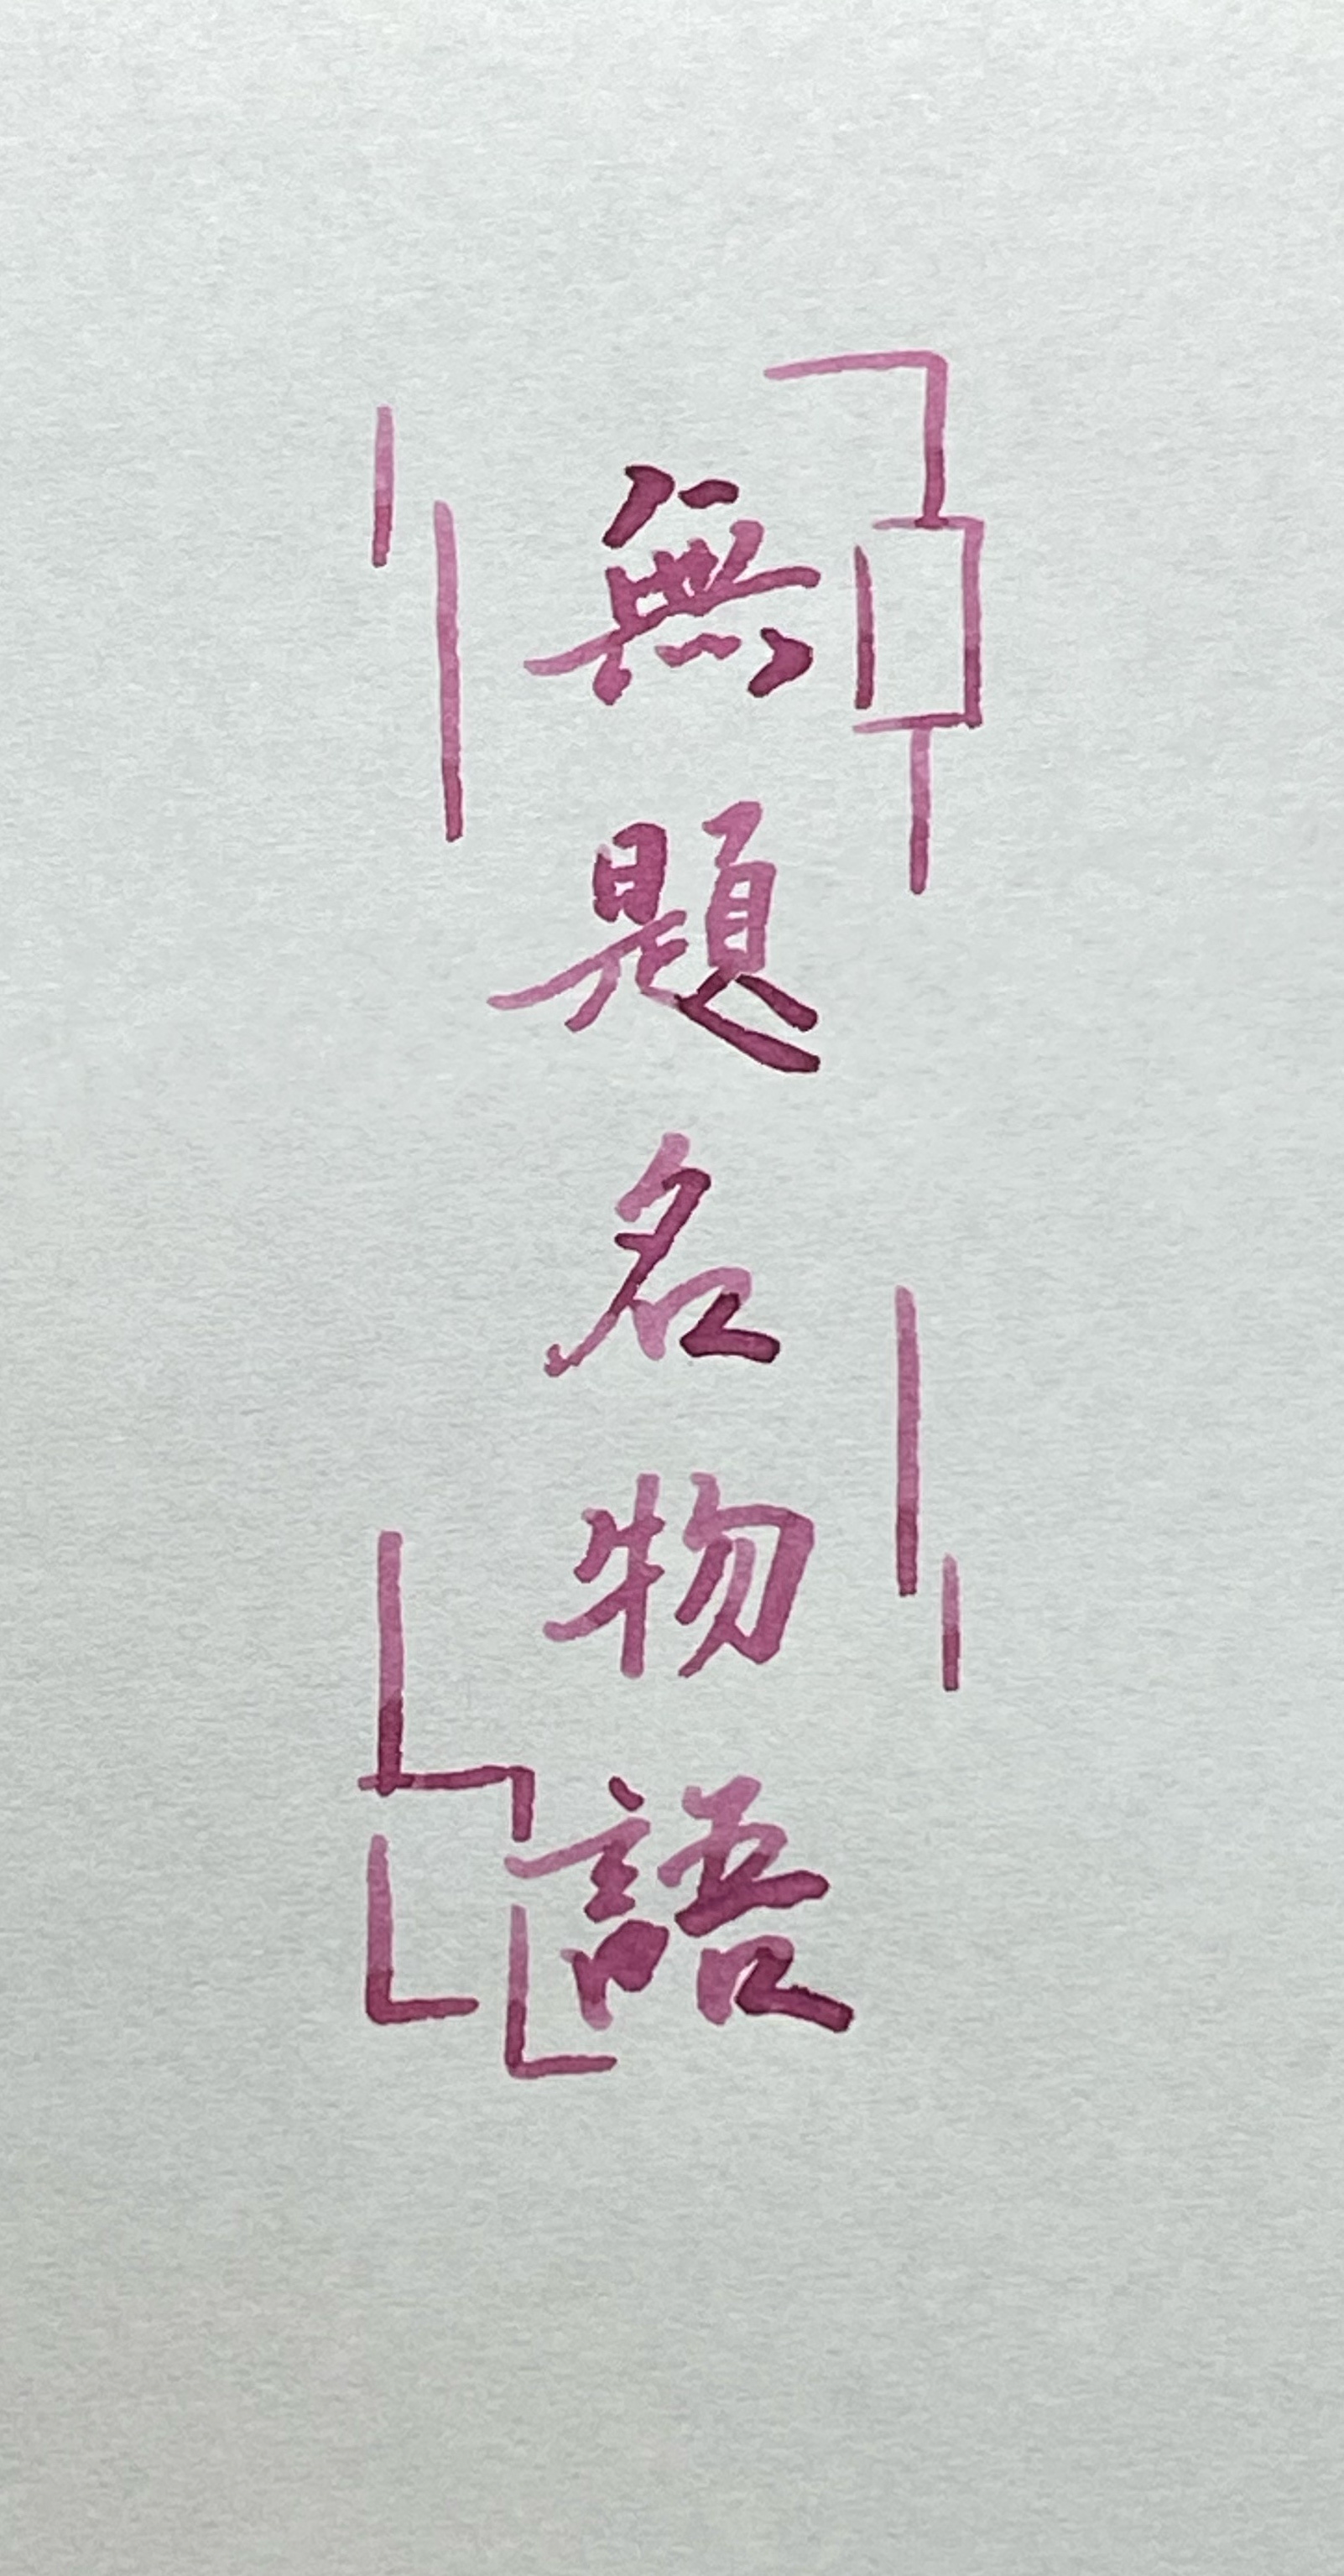 無題名物語